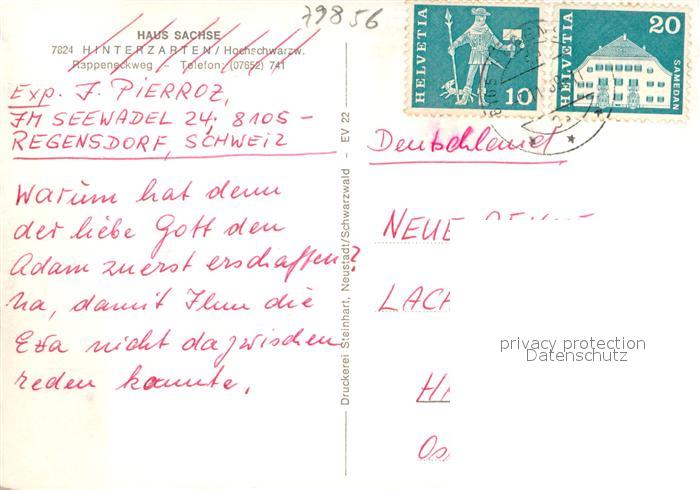 79856
HAUS SACHSE
7824 HINTERZARTEN / Hochschwarzw.
Rappeneckweg - Telefon: (07652) 741
Exp. J. PIERROZ,
IM SEEWADEL 24, 8105 -
REGENSDORF, SCHWEIZ
Warum hat denn
der liebe Gott den
Adam zuerst erschaffen?
na, damit Ihm die
Eva nicht dazwischen
reden konnte.
Druckerei Steinhart, Neustadt/Schwarzwald - EV 22
HELVETIA
10
HELVETIA
20
SAMEDAN
Deutschland,
NEUE
LACH
privacy protection
Datenschutz